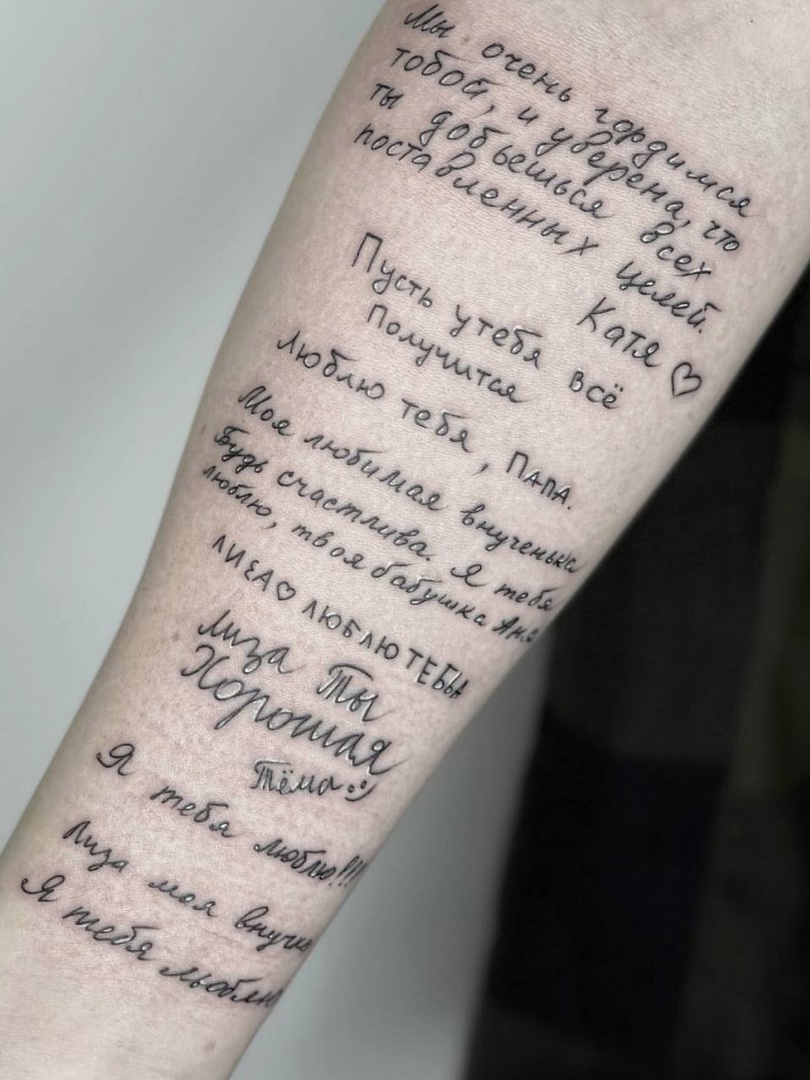 Мы очень гордимся
тобой, и уверена, что
ты добьешься всех
поставленных целей.
Катя ♡
Пусть у тебя всё
получится
Люблю тебя, ПАПА.
Моя любимая внученька
Будь счастлива. Я тебя
люблю, твоя бабушка Аня
ЛИЗА ♡ ЛЮБЛЮ ТЕБЬЯ
Лиза Ты
Хорошая
Тёма :)
Я тебя люблю!!!!
Лиза моя внучка
Я тебя люблю